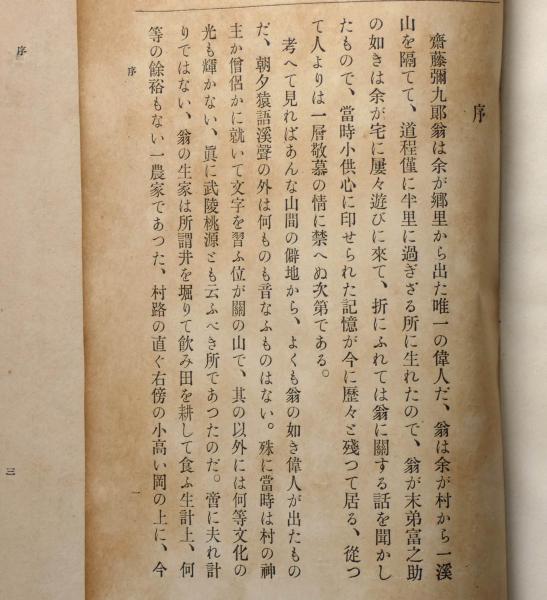 序
齋藤彌九郎翁は余が鄕里から出た唯一の偉人だ、翁は余が村から一溪
山を隔てて、道程僅に半里に過ぎざる所に生れたので、翁が末弟富之助
の如きは余が宅に屢々遊びに來て、折にふれては翁に關する話を聞かし
たもので、當時小供心に印せられた記憶が今に歷々と殘つて居る、從つ
て人よりは一層敬慕の情に禁へぬ次第である。
考へて見ればあんな山間の僻地から、よくも翁の如き偉人が出たもの
だ、朝夕猿語溪聲の外は何ものも音なふものはない。殊に當時は村の神
主か僧侶かに就いて文字を習ふ位が關の山で、其の以外には何等文化の
光も輝かない、眞に武陵桃源とも云ふべき所であつたのだ。啻に夫れ計
りではない、翁の生家は所謂井を堀りて飲み田を耕して食ふ生計上、何
等の餘裕もない一農家であつた、村路の直ぐ右傍の小高い岡の上に、今
序
一
序
三